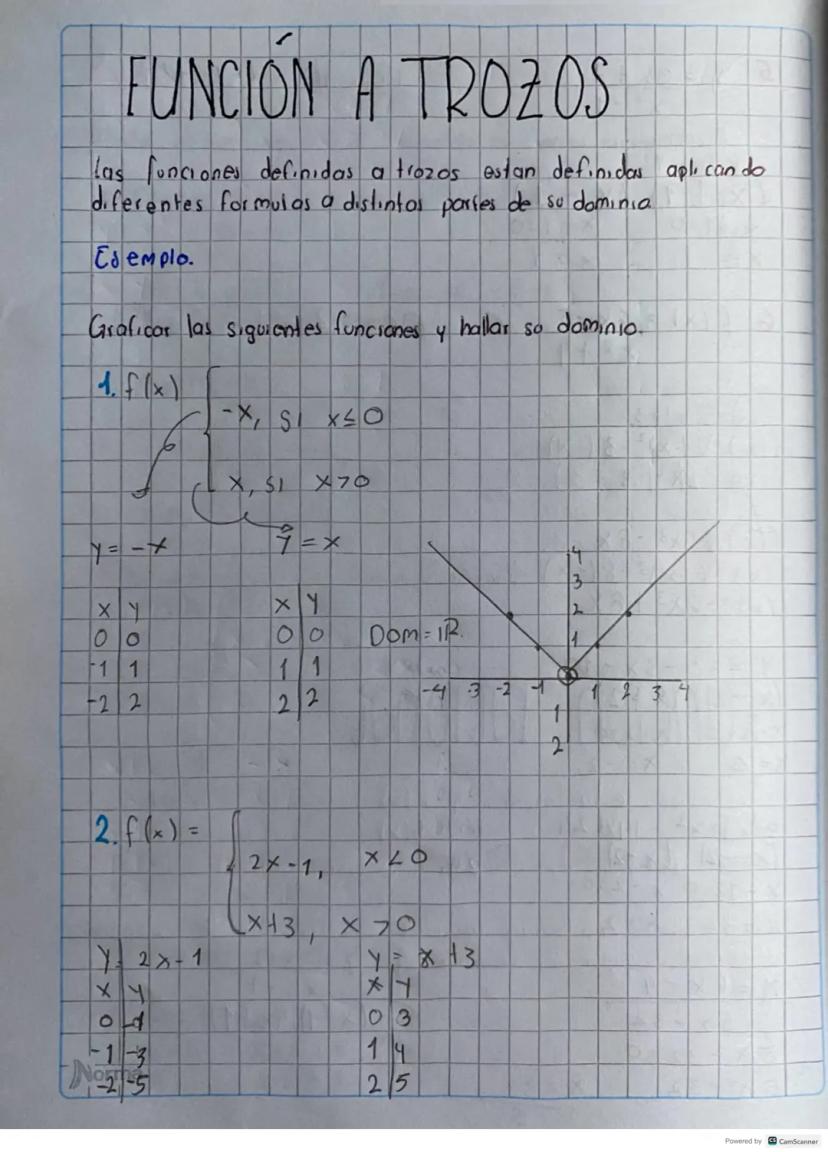 FUNCIÓN A TROZOS
Las funciones definidas a trozos estan definidas aplicando
diferentes formulas a distintas partes de su dominia
Ejemplo.
Graficar las siguientes funciones y hallar su dominio.
1. f(x)
-x, si x≤0
x, si x>0
y = -x
ŷ = x
x | y
0 | 0
-1 | 1
-2 | 2
x | y
0 | 0
1 | 1
2 | 2
Dom = IR.
4
3
2
1
-4 -3 -2 -1 1 2 3 4
1
2
2. f(x) =
2x-1, x<0
x+3, x>0
y = 2x-1
x | y
0 | -1
-1 | -3
-2 | -5
y = x+3
x | y
0 | 3
1 | 4
2 | 5
Norma
Powered by CS CamScanner